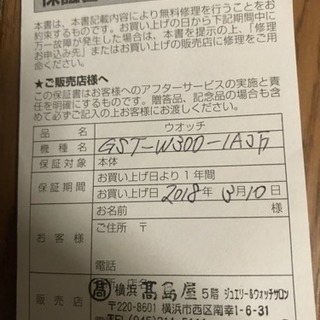 本書は、本書記載内容により無料修理を行うことをお
約束するものです。お買い上げの日から下記期間中に
万一故障が発生した場合は、本書を提示の上、「修理
お申込み先」またはお買い上げの販売店に修理をご用
命ください。
★ご販売店様へ
この保証書はお客様へのアフターサービスの実施と責
任を明確にするものです。贈答品、記念品の場合も含
めて必ずご記入の上お客様にお渡しください。
品名 ウオッチ
機種名 GST-W300-1AJF
保証対象 本体
保証期間 お買い上げ日より1年間
お買い上げ日 2018 3月10日
お客様 お名前 様
ご住所 〒
電話
販売店 横浜 髙島屋 5階 ジュエリー&ウォッチサロン
〒220-8601 横浜市西区南幸1-6-31